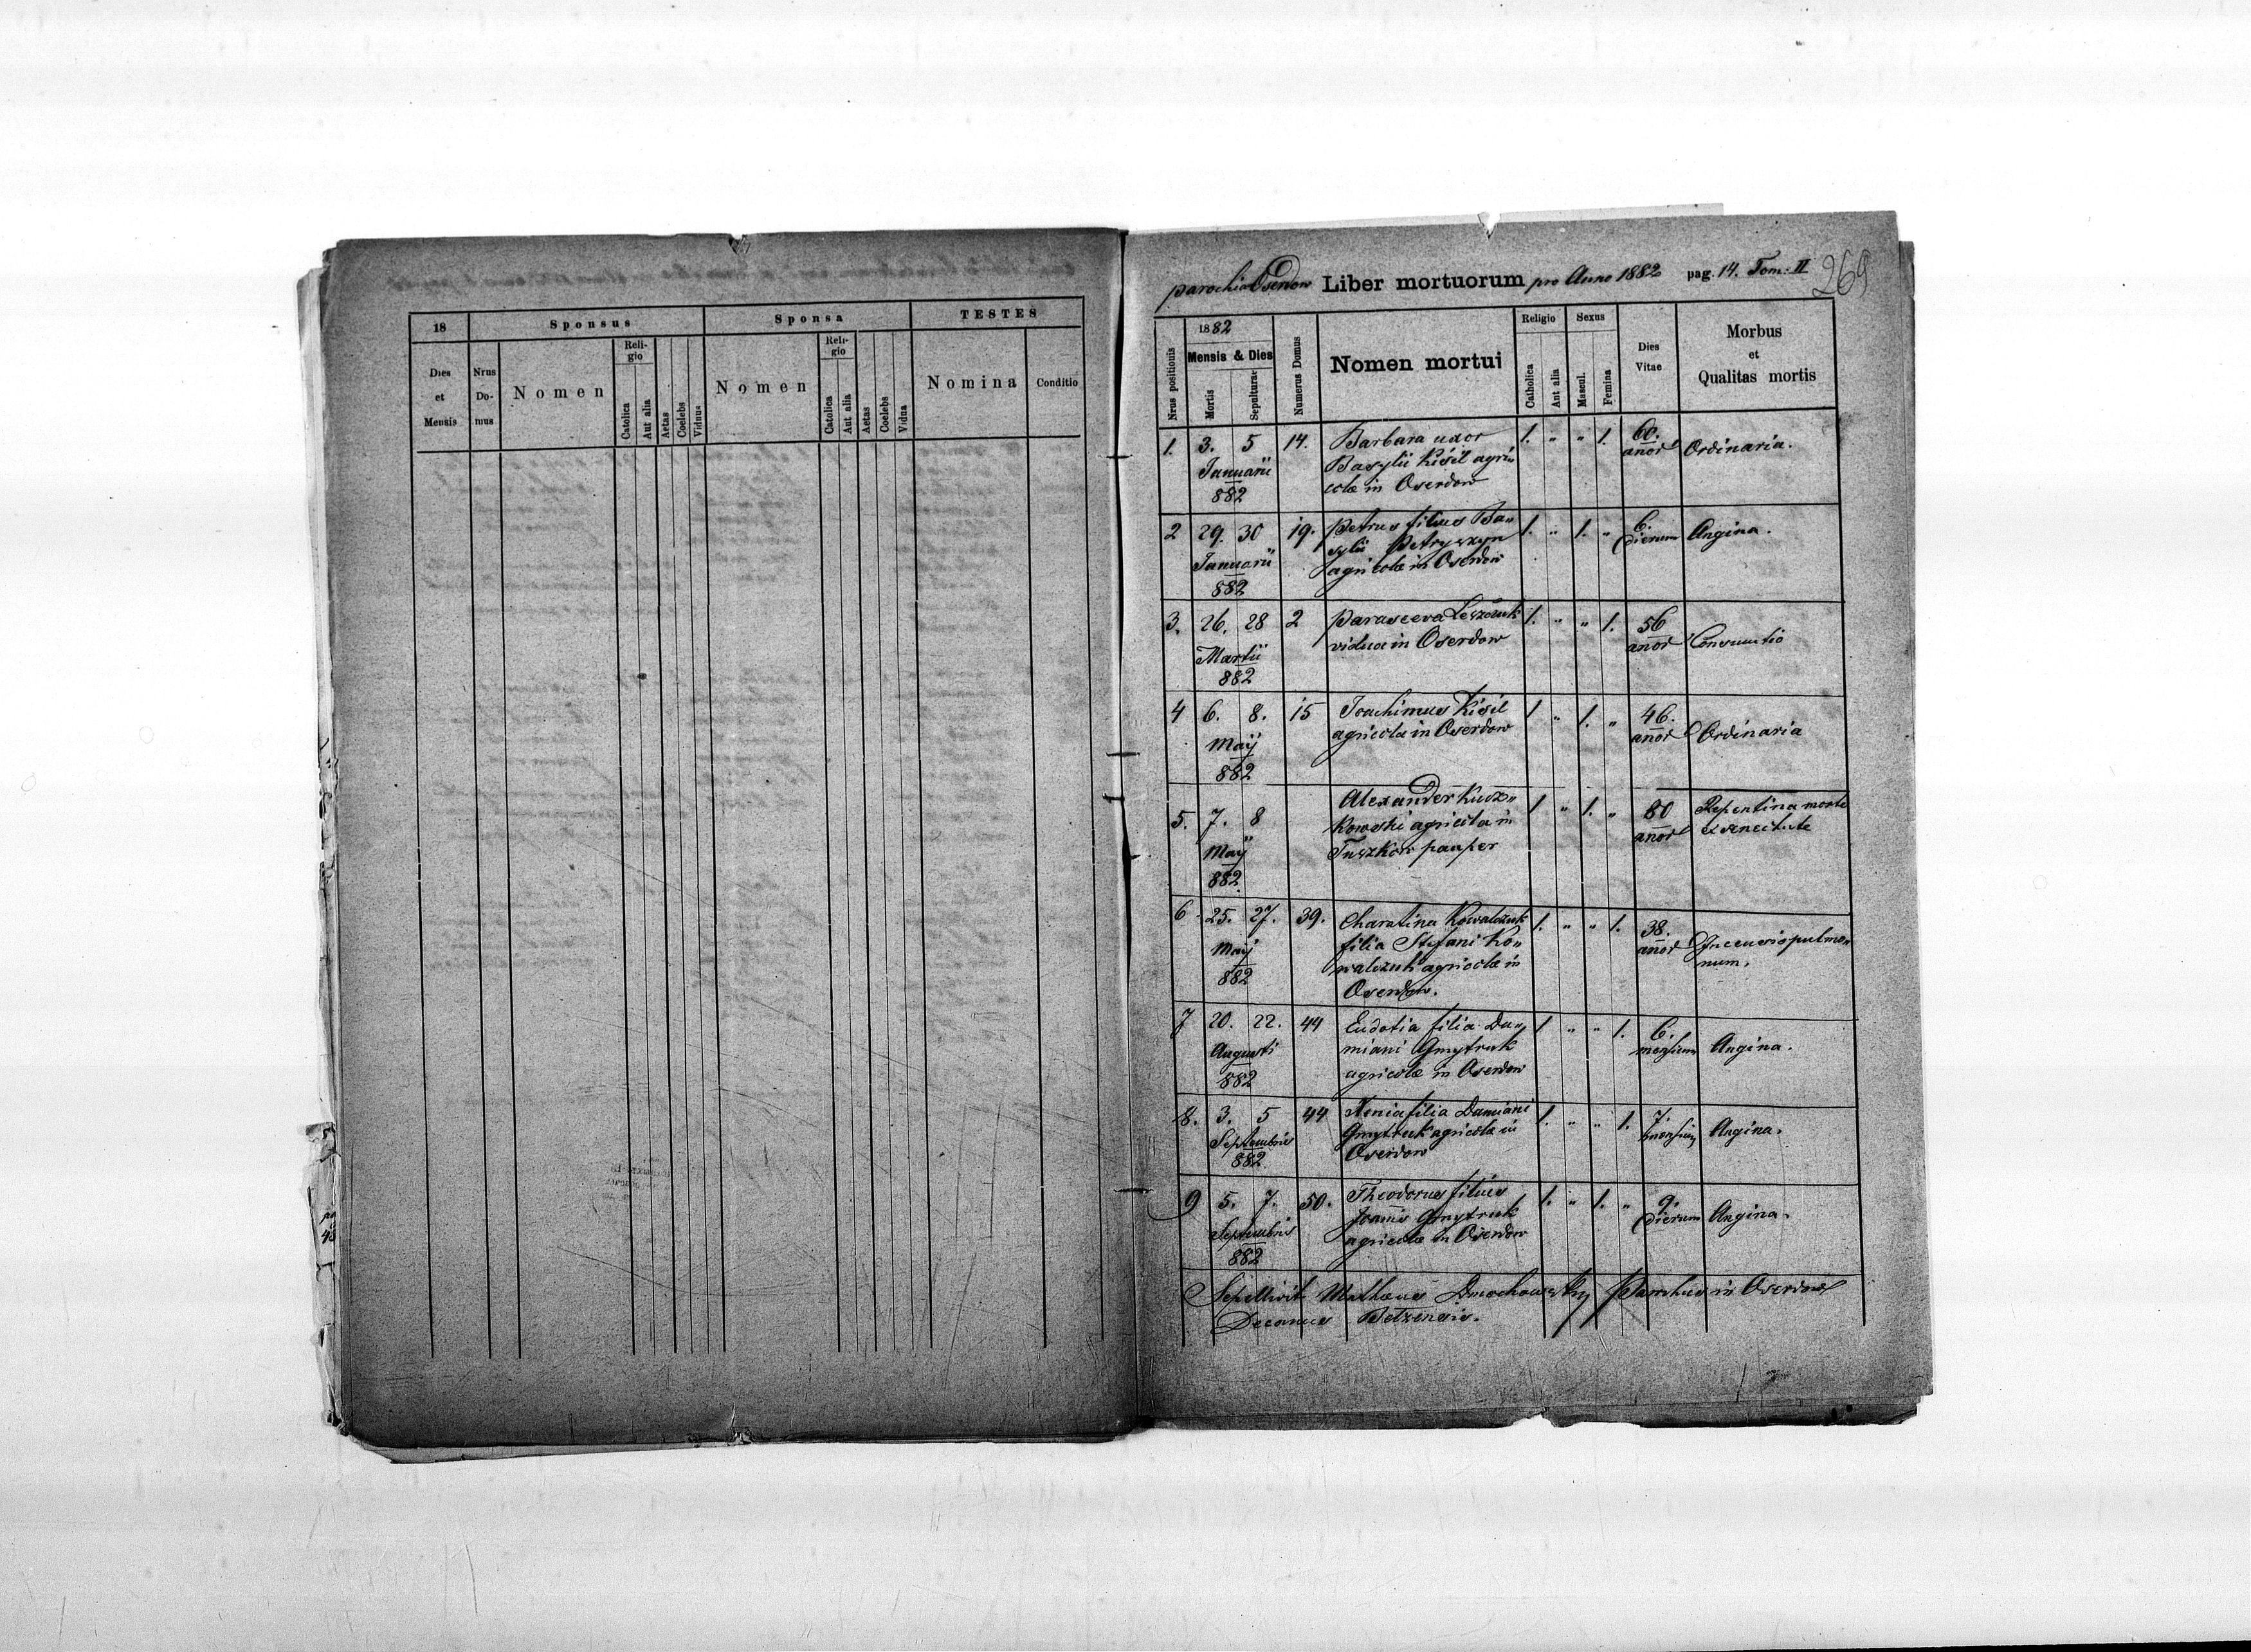 18
Sponsus
Sponsa
TESTES
Dies et Mensis
Nrus Domus
Nomen
Religio
Catolica
Aut alia
Aetas
Coelebs
Viduus
Nomen
Religio
Catolica
Aut alia
Aetas
Coelebs
Vidua
Nomina
Conditio
parochia Oserdow Liber mortuorum pro Anno 1882 pag. 14. Tom: II
269
Nrus positionis
1882
Mensis & Dies
Mortis
Sepulturae
Numerus Domus
Nomen mortui
Religio
Catholica
Aut alia
Sexus
Mascul.
Femina
Dies Vitae
Morbus
et
Qualitas mortis
1. 3. 5 14. Barbara uxor 1. " " 1. 60. Ordinaria.
Januarii Basylii Kisil agri= anor
882 colæ in Oserdow
2 29. 30 19. Petrus filius Ba= 1. " 1. " 6. Angina.
Januarii sylii Petryszyn dierum
882 agricolæ in Oserdow
3. 26. 28 2 Parasceva Leszczuk 1. " " 1. 56
Martii vidua in Oserdow anor Consumtio
882
4 6. 8. 15 Joachimus Kisil 1 " 1. " 46.
Maij agricola in Oserdow anor Ordinaria
882
5. 7. 8 Alexander Kucz= 1 " 1. " 80 Repentina morte
Maij kowski agricola in anor ex senectute
882. Tuszkow pauper
6 25. 27. 39. Charatina Kowalczuk 1. " " 1. 38.
Maij filia Stefani Ko= anor pulmo=
882 walczuk agricolæ in num.
Oserdow.
7 20. 22. 44 Eudotia filia Da= 1 " " 1. 6.
Augusti miani Gmytruk mensium Angina.
882 agricolæ in Oserdow
8. 3. 5 44 Xenia filia Damiani 1. " " 1. 7. Angina.
Septembris Gmytruk agricolæ in mensium
882 Oserdow
9 5. 7. 50. Theodorus filius 1. " 1. " 9. Angina.
Septembris Joannis Gmytruk dierum
882 agricolæ in Oserdow
Sepellivit Mathaeus Dmochowsky Parochus in Oserdow
Decanus Belzensis.